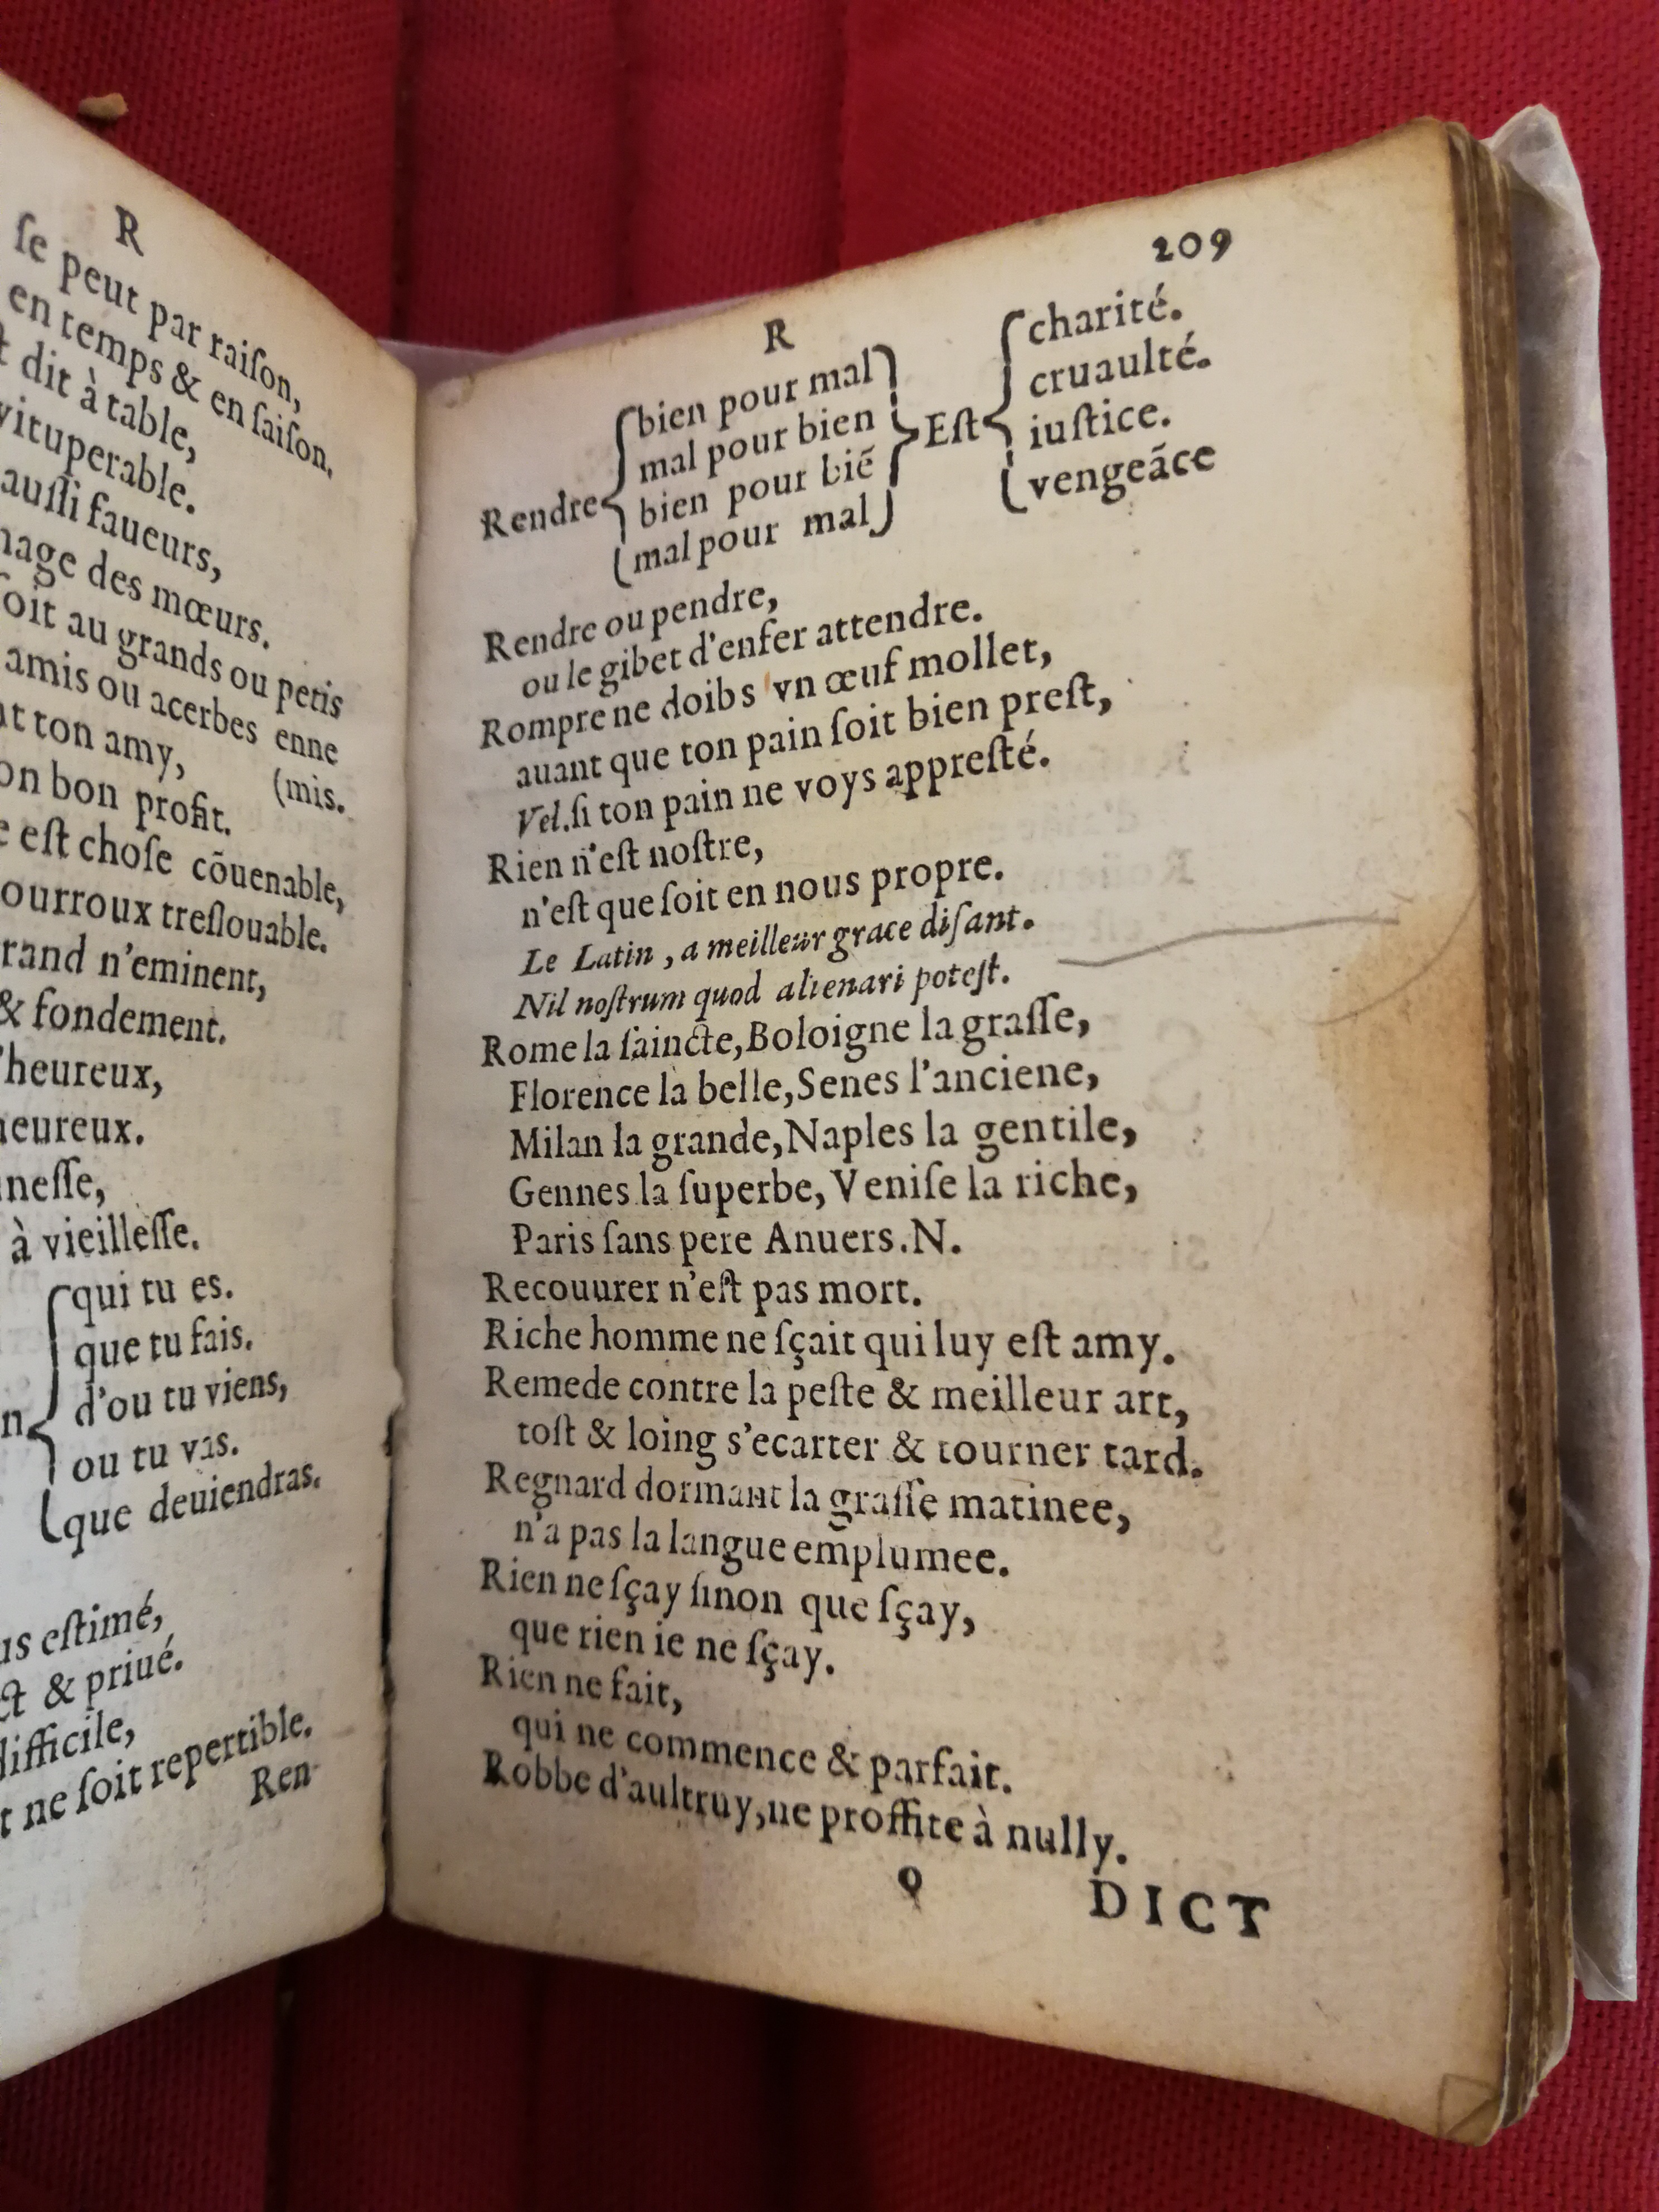 R
ſe peut par raiſon,
en temps & en ſaiſon.
dit à table,
vituperable.
auſſi faueurs,
des mœurs.
au grands ou petis
amis ou acerbes enne
ton amy, (mis.
bon profit.
eſt choſe cōuenable,
treſlouable.
n'eminent,
& fondement.
heureux,
à vieilleſſe.
qui tu es.
que tu fais.
d'ou tu viens,
ou tu vas.
que deuiendras.
eſtimé,
& priué.
difficile,
ne ſoit repertible.
Ren
209
R
Rendre { bien pour mal } Eſt { charité.
mal pour bien cruaulté.
bien pour biē iuſtice.
mal pour mal vengeāce
Rendre ou pendre,
ou le gibet d'enfer attendre.
Rompre ne doibs vn œuf mollet,
auant que ton pain ſoit bien preſt,
Vel. ſi ton pain ne voys appreſté.
Rien n'eſt noſtre,
n'eſt que ſoit en nous propre.
Le Latin, a meilleur grace diſant.
Nil noſtrum quod alienari poteſt.
Rome la ſaincte, Boloigne la graſſe,
Florence la belle, Senes l'anciene,
Milan la grande, Naples la gentile,
Gennes la ſuperbe, Veniſe la riche,
Paris ſans pere Anuers. N.
Recouurer n'eſt pas mort.
Riche homme ne ſçait qui luy eſt amy.
Remede contre la peſte & meilleur art,
toſt & loing s'ecarter & tourner tard.
Regnard dormant la graſſe matinee,
n'a pas la langue emplumee.
Rien ne ſçay ſinon que ſçay,
que rien ie ne ſçay.
Rien ne fait,
qui ne commence & parfait.
Robbe d'aultruy, ne proffite à nully.
Q DICT